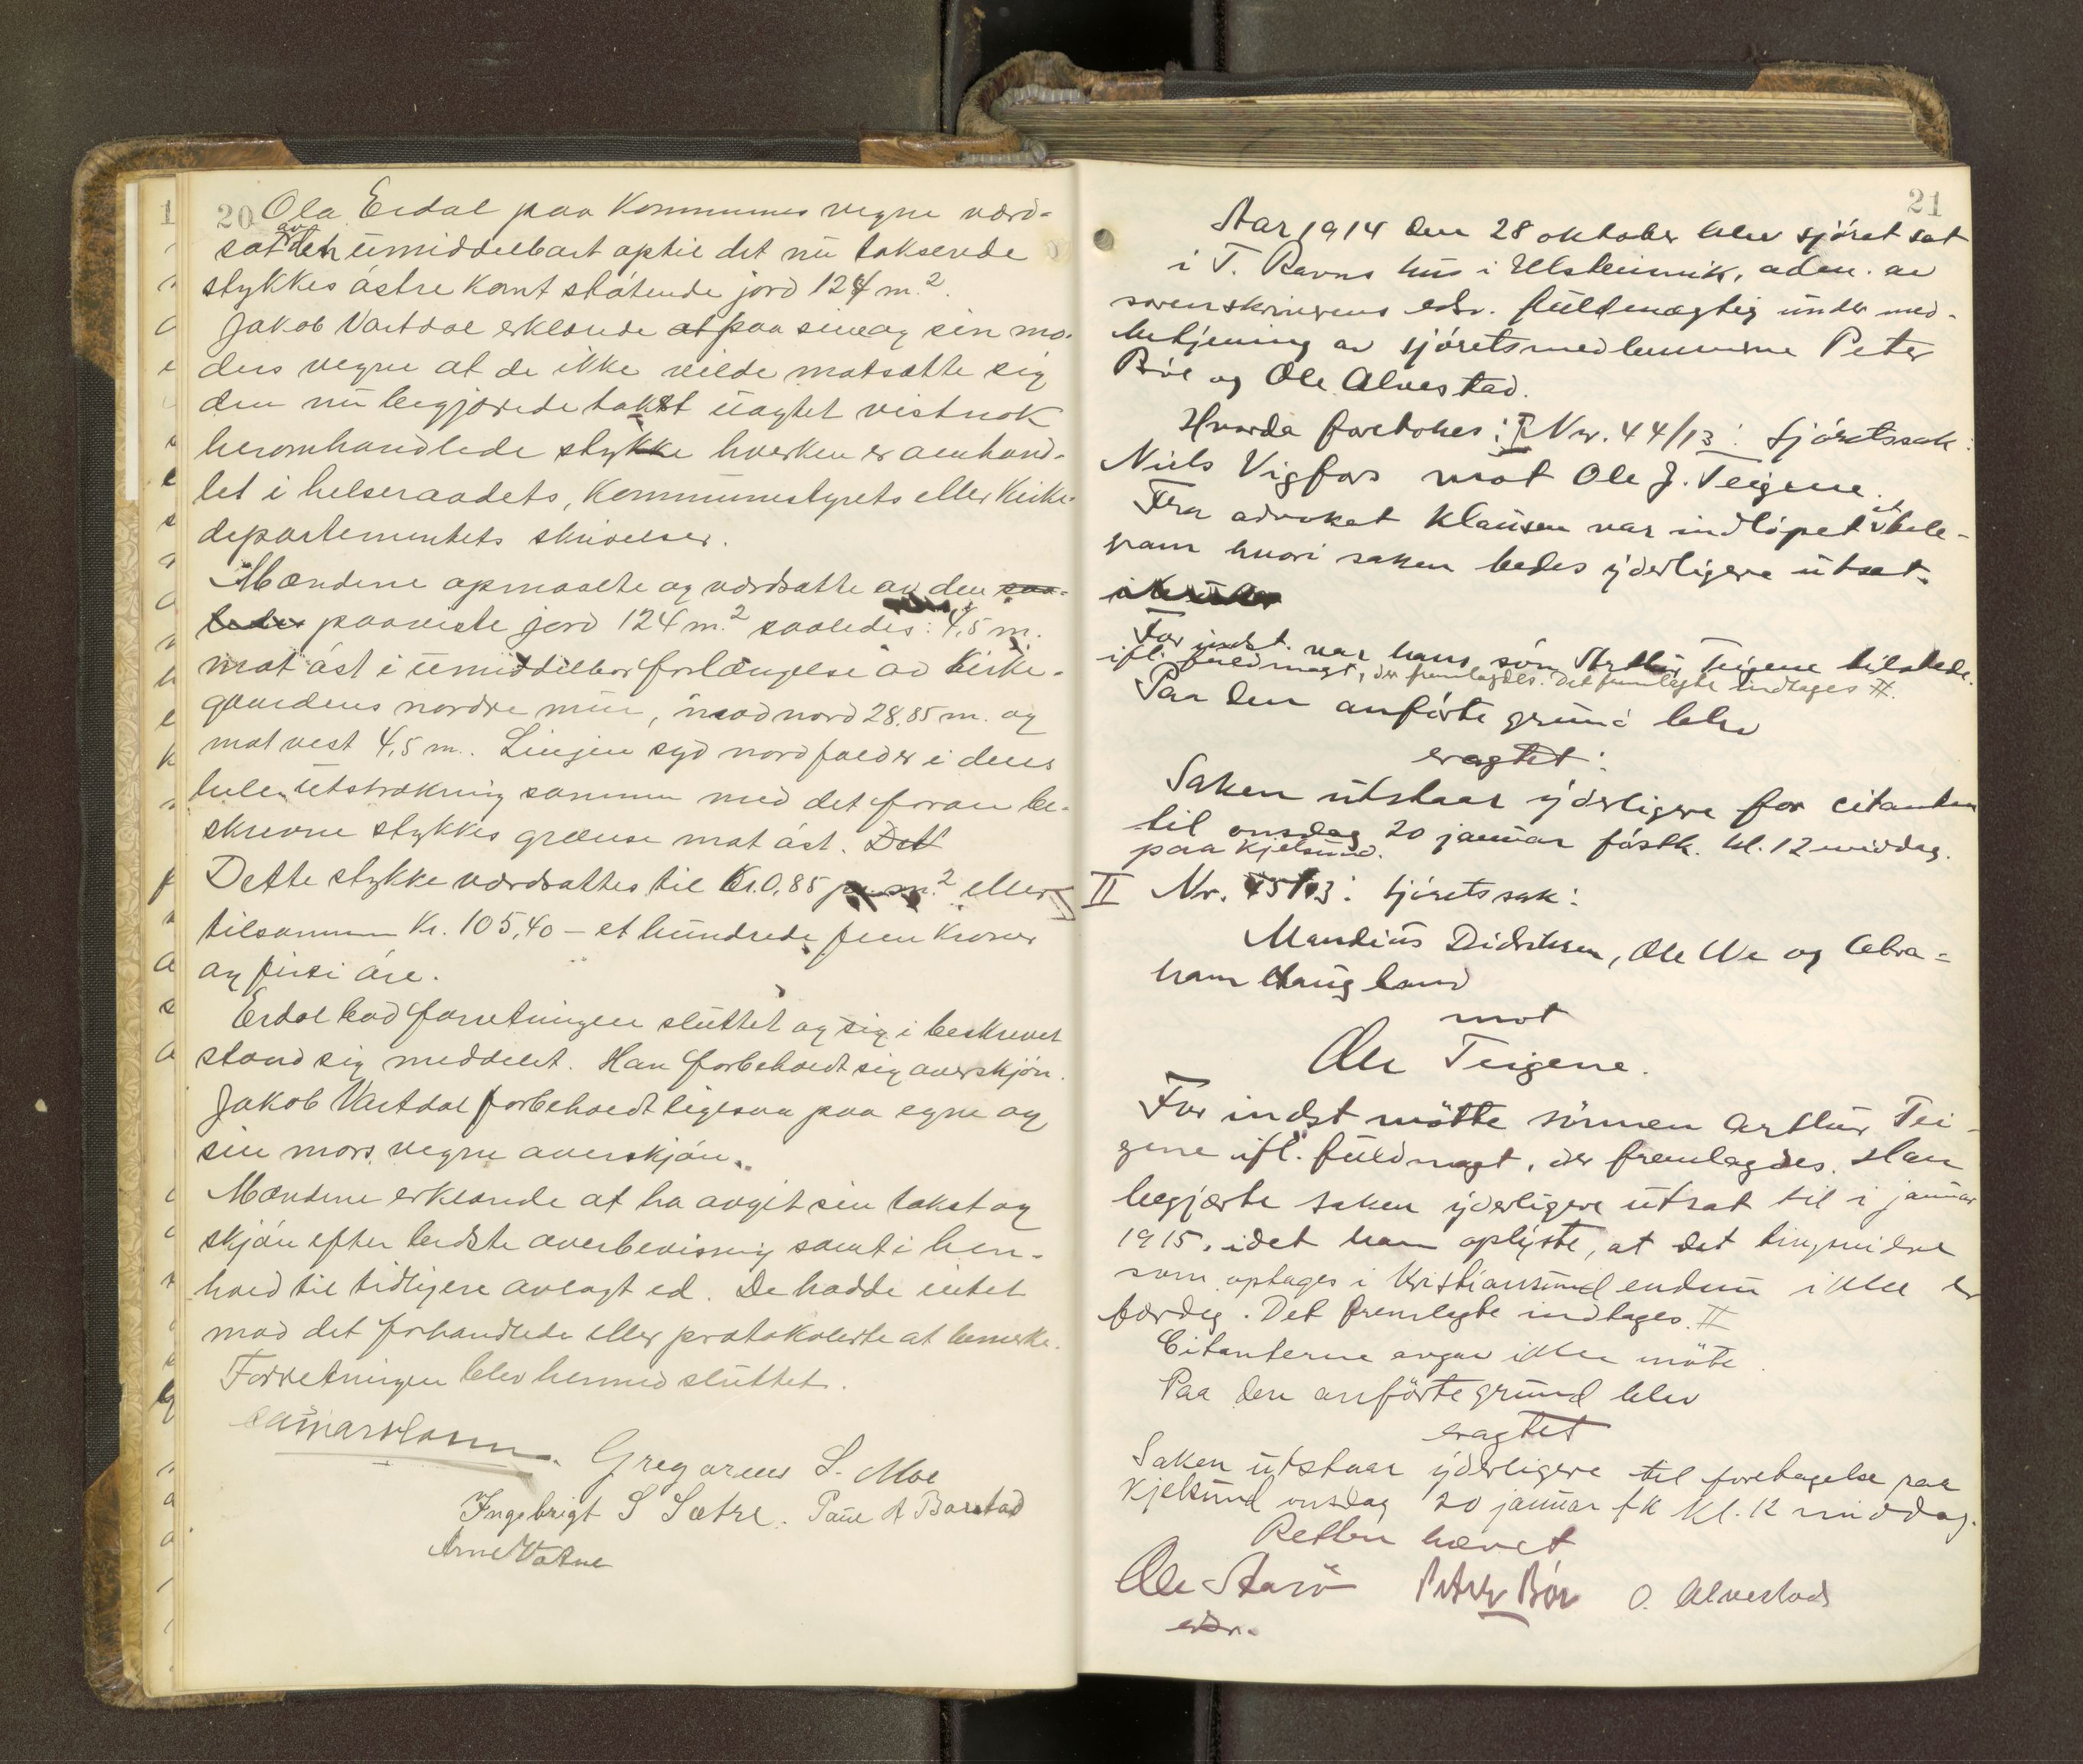 20
Ola Erdal paa Kommunens vegne værd-
sat av den umiddelbart optil det nu takserede
stykkes østre kant støtende jord 124 m.²
Jakob Vartdal erklærede paa sine og sin mo-
ders vegne at de ikke vilde motsætte sig
den nu begjærede takst uagtet vistnok
heromhandlede stykke hverken er avhand-
let i helseraadets, Kommunestyrets eller Kirke-
departementets skrivelser.
Mændene opmaalte og værdsatte av den saa-
ledes paaviste jord 124 m.² saaledes: 4,5 m.
mot øst i umiddelbar forlængelse av kirke-
gaardens nordre mur, mod nord 28,85 m. og
mot vest 4,5 m. Linjen syd nord falder i dens
hele utstrækning sammen med det foran be-
skrevne stykkes grænse mot øst. Det
Dette stykke værdsattes til Kr. 0,85 pr. m.² eller
tilsammen Kr. 105,40 – et hundrede fem Kroner
og firti øre.
Erdal bad forretningen sluttet og sig i beskrevet
stand sig meddelt. Han forbeholdt sig overskjøn.
Jakob Vartdal forbeholdt ligesaa paa egne og
sin mors vegne overskjøn.
Mændene erklærede at ha avgit sin takst og
skjøn efter bedste overbevisning samt i hen-
hold til tidligere avlagt ed. De hadde intet
mod det forhandlede eller protokolerte at bemerke.
Forretningen blev hermed sluttet.
Gregorius L. Moe
Ingebrigt S Sætre. Paul A Barstad
Arne Vatne
21
Aar 1914 den 28 oktober blev sjøret sat
i T. Ravns hus i Ulsteinvik, adm. av
sorenskriverens edsv. fuldmægtig under med-
betjening av sjøretsmedlemmerne Peter
Bøe og Ole Alvestad.
Hvorda foretokes: I Nr. 44/13: Sjøretssak:
Niels Vigfos mot Ole J. Teigene.
Fra advokat Klausen var indløpet et tele-
gram hvori saken bedes yderligere utsat.
For indst. var hans søn Arthur Teigene tilstede.
ifl. fuldmagt, der fremlagdes. Det fremlagte indtages #.
Paa den anførte grund blev
eragtet:
Saken utstaar yderligere for citanten
til onsdag 20 januar førstk. kl. 12 middag.
paa Kjelsund.
II Nr. 45/13: Sjøretssak:
Mandius Didriksen, Ole We og Abra-
ham Haugland
mot
Ole Teigene.
For indst møtte sønnen Arthur Tei-
gene ifl. fuldmagt, der fremlagdes. Han
begjærte saken yderligere utsat til i januar
1915, idet han oplyste, at det tingsvidne
som optages i Kristiansund endnu ikke er
færdig. Det fremlagte indtages. #
Citanterne avgav ikke møte.
Paa den anførte grund blev
eragtet
Saken utstaar yderligere til foretagelse paa
Kjelsund onsdag 20 januar f k kl. 12 middag.
Retten hævet
Peter Bøe O. Alvestad
edsv.